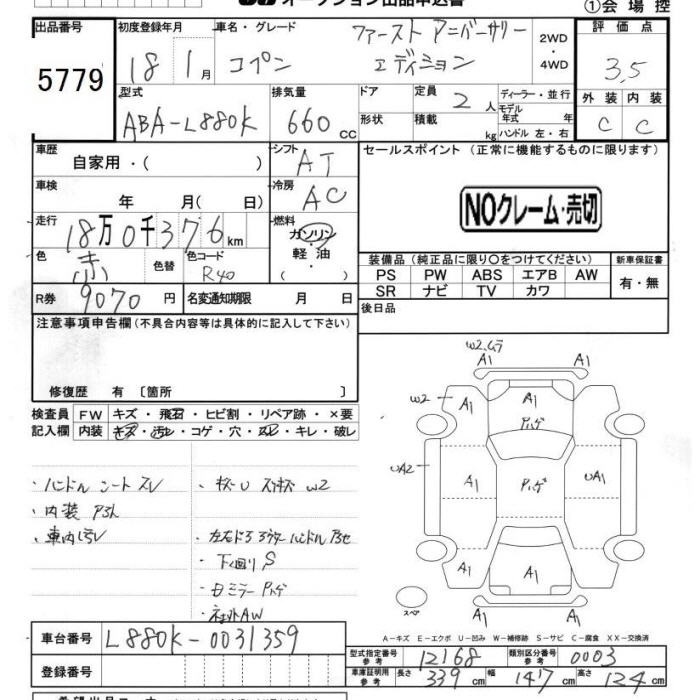 オークション出品申込書
①会場控
出品番号 5779
初度登録年月 18年 1月
車名・グレード コペン ファースト アニバーサリー エディション
2WD・4WD
評価点 3.5
外装 C 内装 C
型式 ABA-L880K
排気量 660cc
ドア
形状
定員 2人
積載 kg
ディーラー・並行
モデル年式 年
ハンドル 左・右
車歴 自家用・( )
シフト AT
車検 年 月( 日)
冷房 AC
走行 18万0千376km
燃料 ガソリン・軽油・( )
色 赤
色替
色コード R40
R券 9070円
名変通知期限 月 日
セールスポイント (正常に機能するものに限ります)
NOクレーム・売切
装備品 (純正品に限り○をつけてください)
新車保証書
PS PW ABS エアB AW
有・無
SR ナビ TV カワ
後日品
注意事項申告欄(不具合内容等は具体的に記入して下さい)
修復歴 有 〔箇所 〕
検査員記入欄
FW キズ・飛石・ヒビ割・リペア跡・×要
内装 キズ・汚レ・コゲ・穴・スレ・キレ・破レ
・ハンドル シート スレ
・内装
・車内汚レ
・下回りS
・ミラー ハゲ
・社外AW
W2.ムラ
A1 A1
W2 A1 ハゲ A1
UA2 A1 ハゲ UA1
A1 A1 A1
A1 A1
スペア
A-キズ E-エクボ U-凹み W-補修跡 S-サビ C-腐食 XX-交換済
車台番号 L880K-0031359
型式指定番号 参考 12168
類別区分番号 参考 0003
登録番号
車庫証明用 参考 長さ 339cm 幅 147cm 高さ 124cm